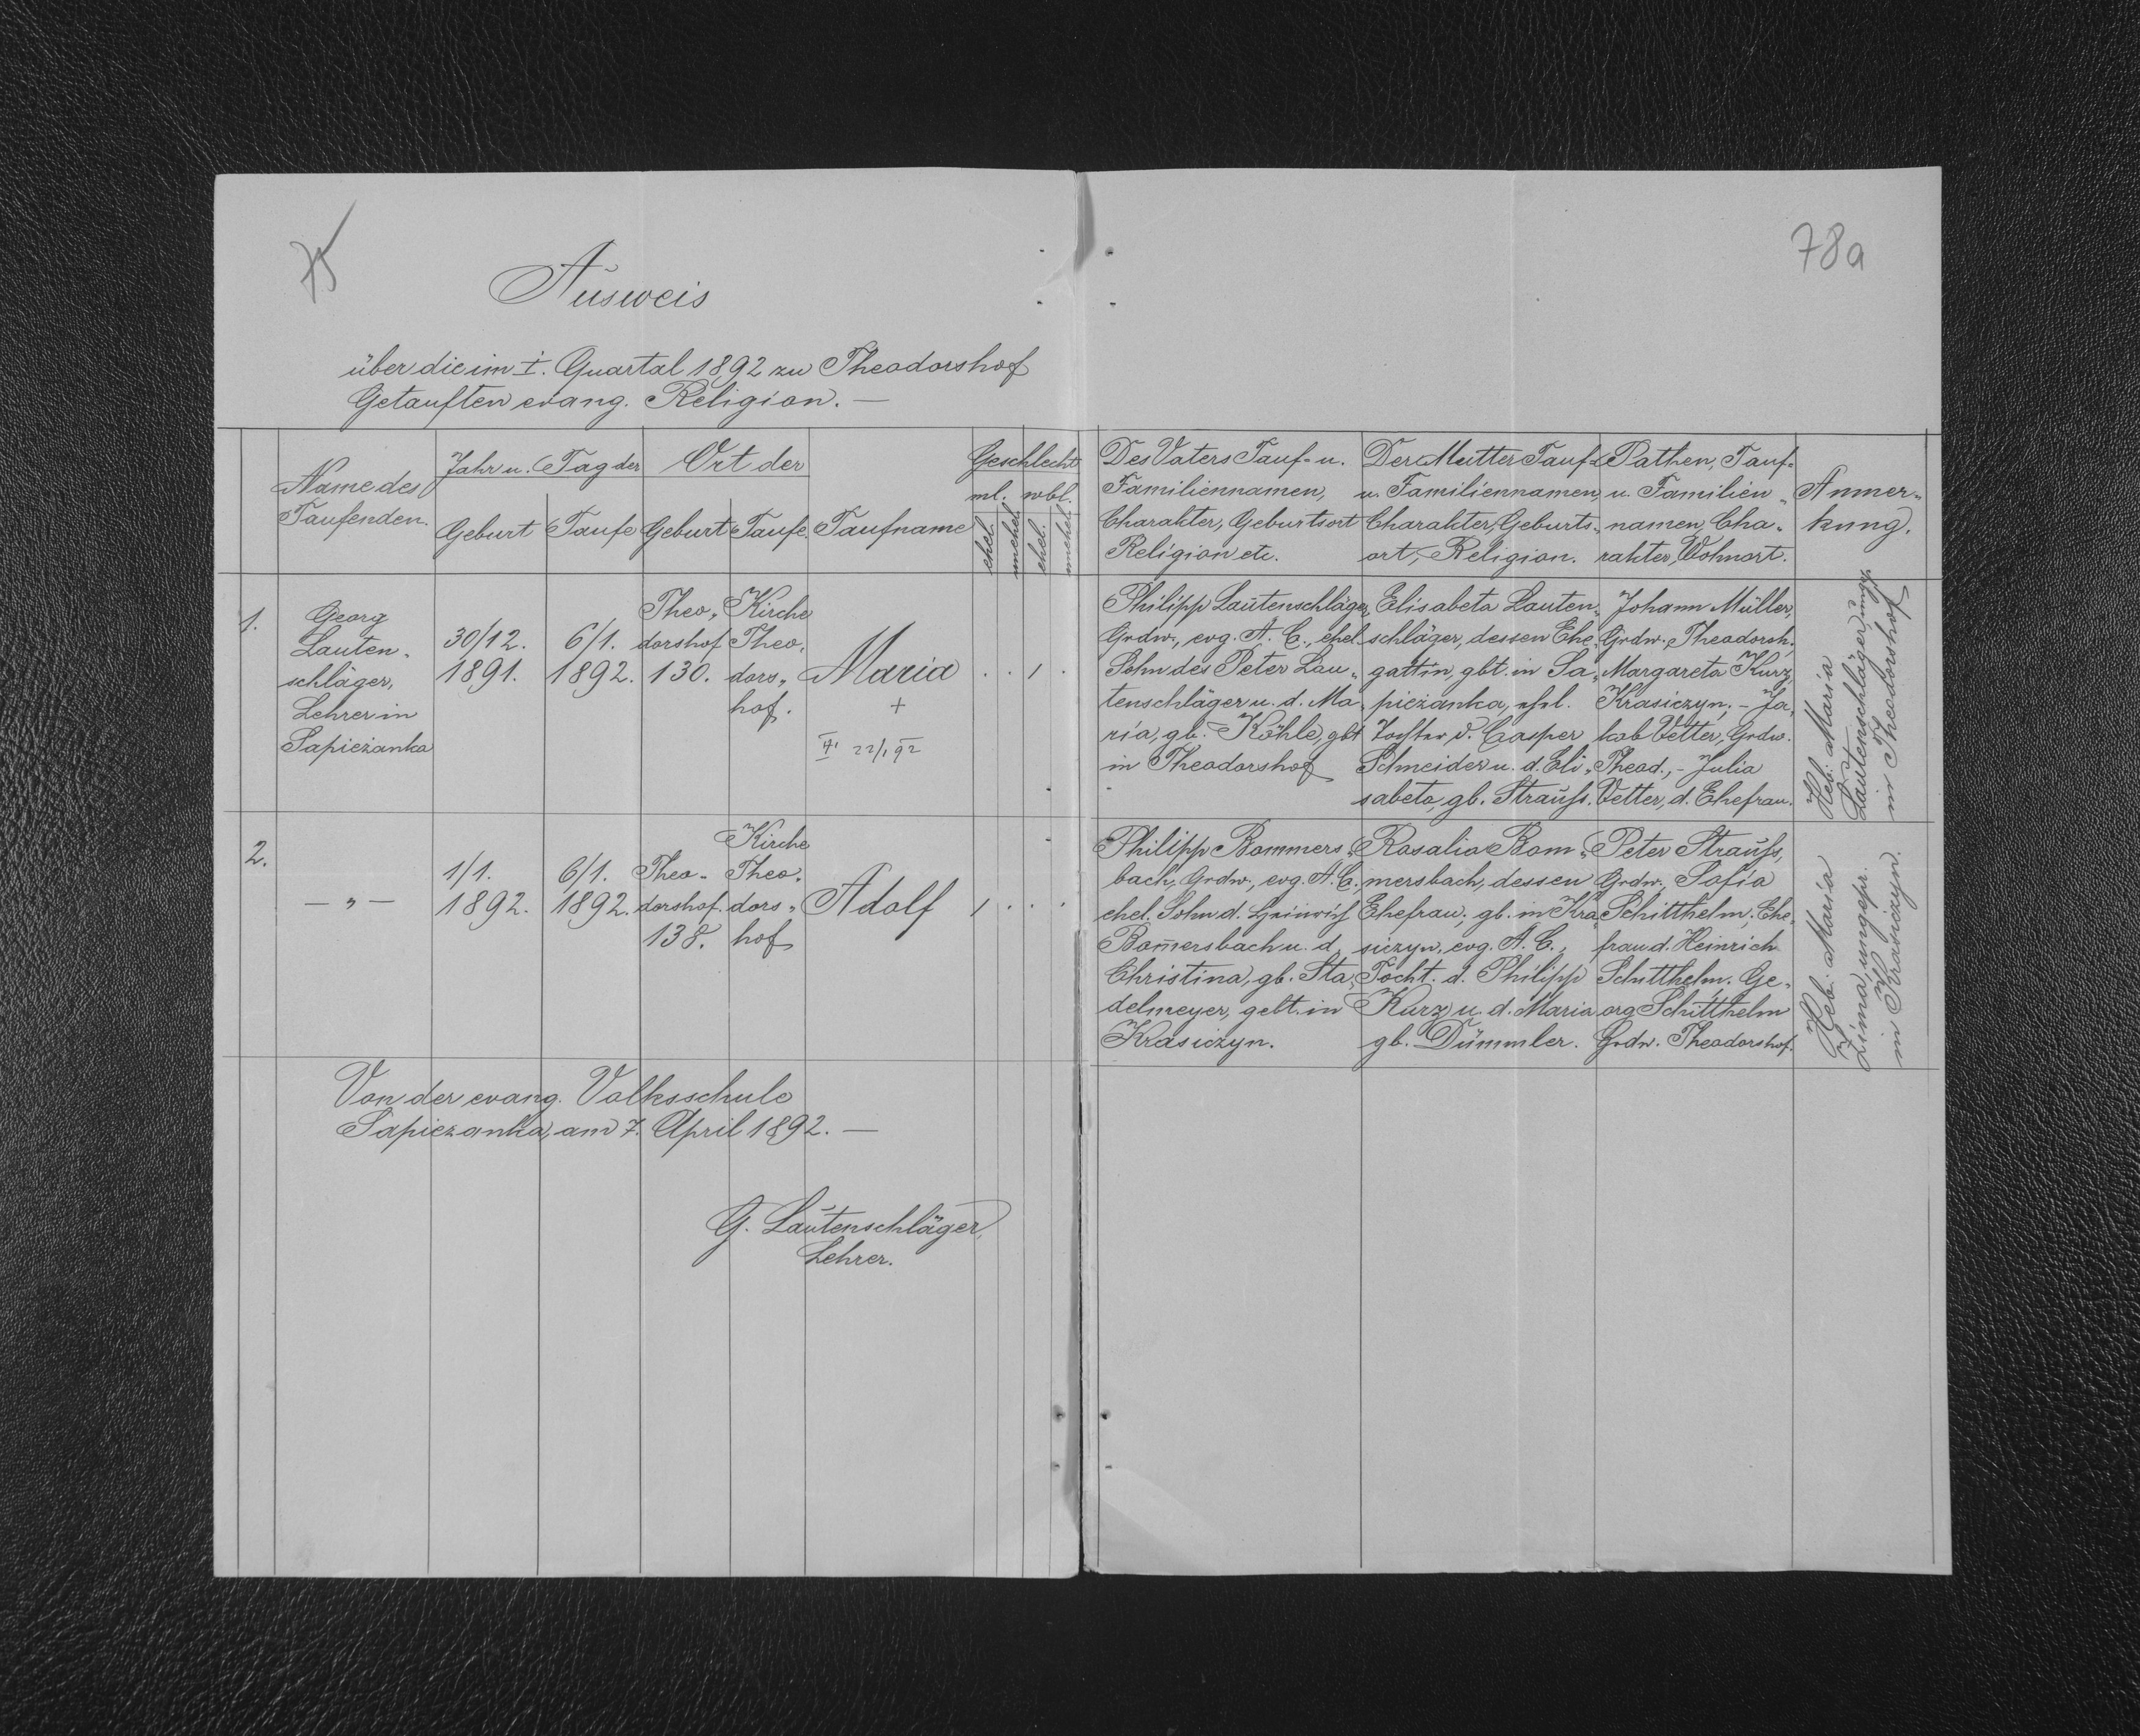 75
78a
Ausweis
über die im I. Quartal 1892 zu Theodorshof
Getauften evang. Religion. —
Name des
Taufenden.
Jahr u. Tag der
Geburt
Taufe
Ort der
Geburt
Taufe
Taufname
Geschlecht
ml.
wbl.
ehel.
unehel.
ehel.
unehel.
Des Vaters Tauf- u.
Familiennamen,
Charakter, Geburtsort
Religion etc.
Der Mutter Tauf-
u. Familiennamen,
Charakter, Geburts-
ort, Religion.
Pathen, Tauf-
u. Familien-
namen, Cha-
rakter, Wohnort.
Anmer-
kung.
1.
Georg
Lauten-
schläger,
Lehrer in
Sapieżanka
30/12.
1891.
6/1.
1892.
Theo-
dorshof
130.
Kirche
Theo-
dors-
hof.
Maria
+
22/1 92
. . 1 .
Philipp Lautenschläger,
Grdw., evg. A. C., ehel.
Sohn des Peter Lau-
tenschläger u. d. Ma-
ria, gb. Köhle, gbt
in Theodorshof
Elisabeta Lauten-
schläger, dessen Ehe-
gattin, gbt. in Sa-
pieżanka, ehel.
Tochter d. Casper
Schneider u. d. Eli-
sabeta, gb. Strauß.
Johann Müller,
Grdw. Theodorsh.,
Margareta Kurz,
Krasiczyn, – Ja-
kob Vetter, Grdw.
Theod., – Julia
Vetter, d. Ehefrau.
Heb: Maria
Lautenschläger, ungp.
in Theodorshof
2.
— " —
1/1.
1892.
6/1.
1892.
Theo-
dorshof.
138.
Kirche
Theo-
dors-
hof
Adolf
1 . . .
Philipp Bommers-
bach, Grdw., evg. A. C.,
ehel. Sohn d. Heinrich
Bom̄ersbach u. d.
Christina, gb. Sta-
delmeyer, gebt. in
Krasiczyn.
Rosalia Bom-
mersbach, dessen
Ehefrau, gb. in Kra-
siczyn, evg. A. C.,
Tocht. d. Philipp
Kurz u. d. Maria
gb. Dümmler.
Peter Strauß,
Grdw., Sofia
Schitthelm, Ehe-
frau d. Heinrich
Schitthelm. Ge-
org Schitthelm
Grdw. Theodorshof.
Heb: Maria
Zima, ungepr.
in Krasiczyn.
Von der evang. Volksschule
Sapiezanka, am 7. April 1892. —
G. Lautenschläger,
Lehrer.